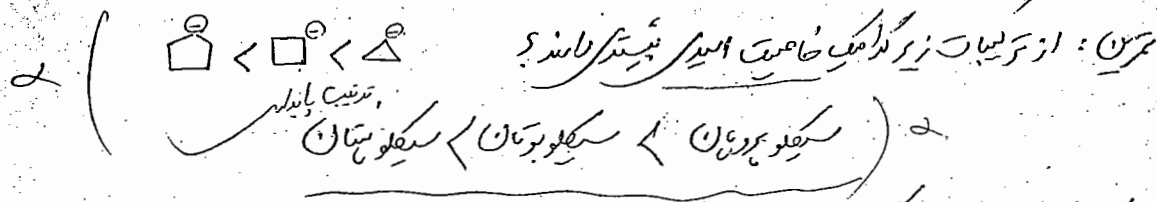 تمرین : از ترکیبات زیر کدامیک خاصیت اسیدی بیشتری دارند ؟
α ( ⊖ < ⊖ < ⊖
ترتیب پایداری
α ( سیکلوپروپان < سیکلوبوتان < سیکلوپنتان